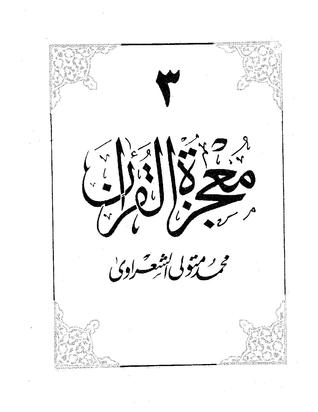 ٣
معجزة القرآن
محمد متولى الشعراوى